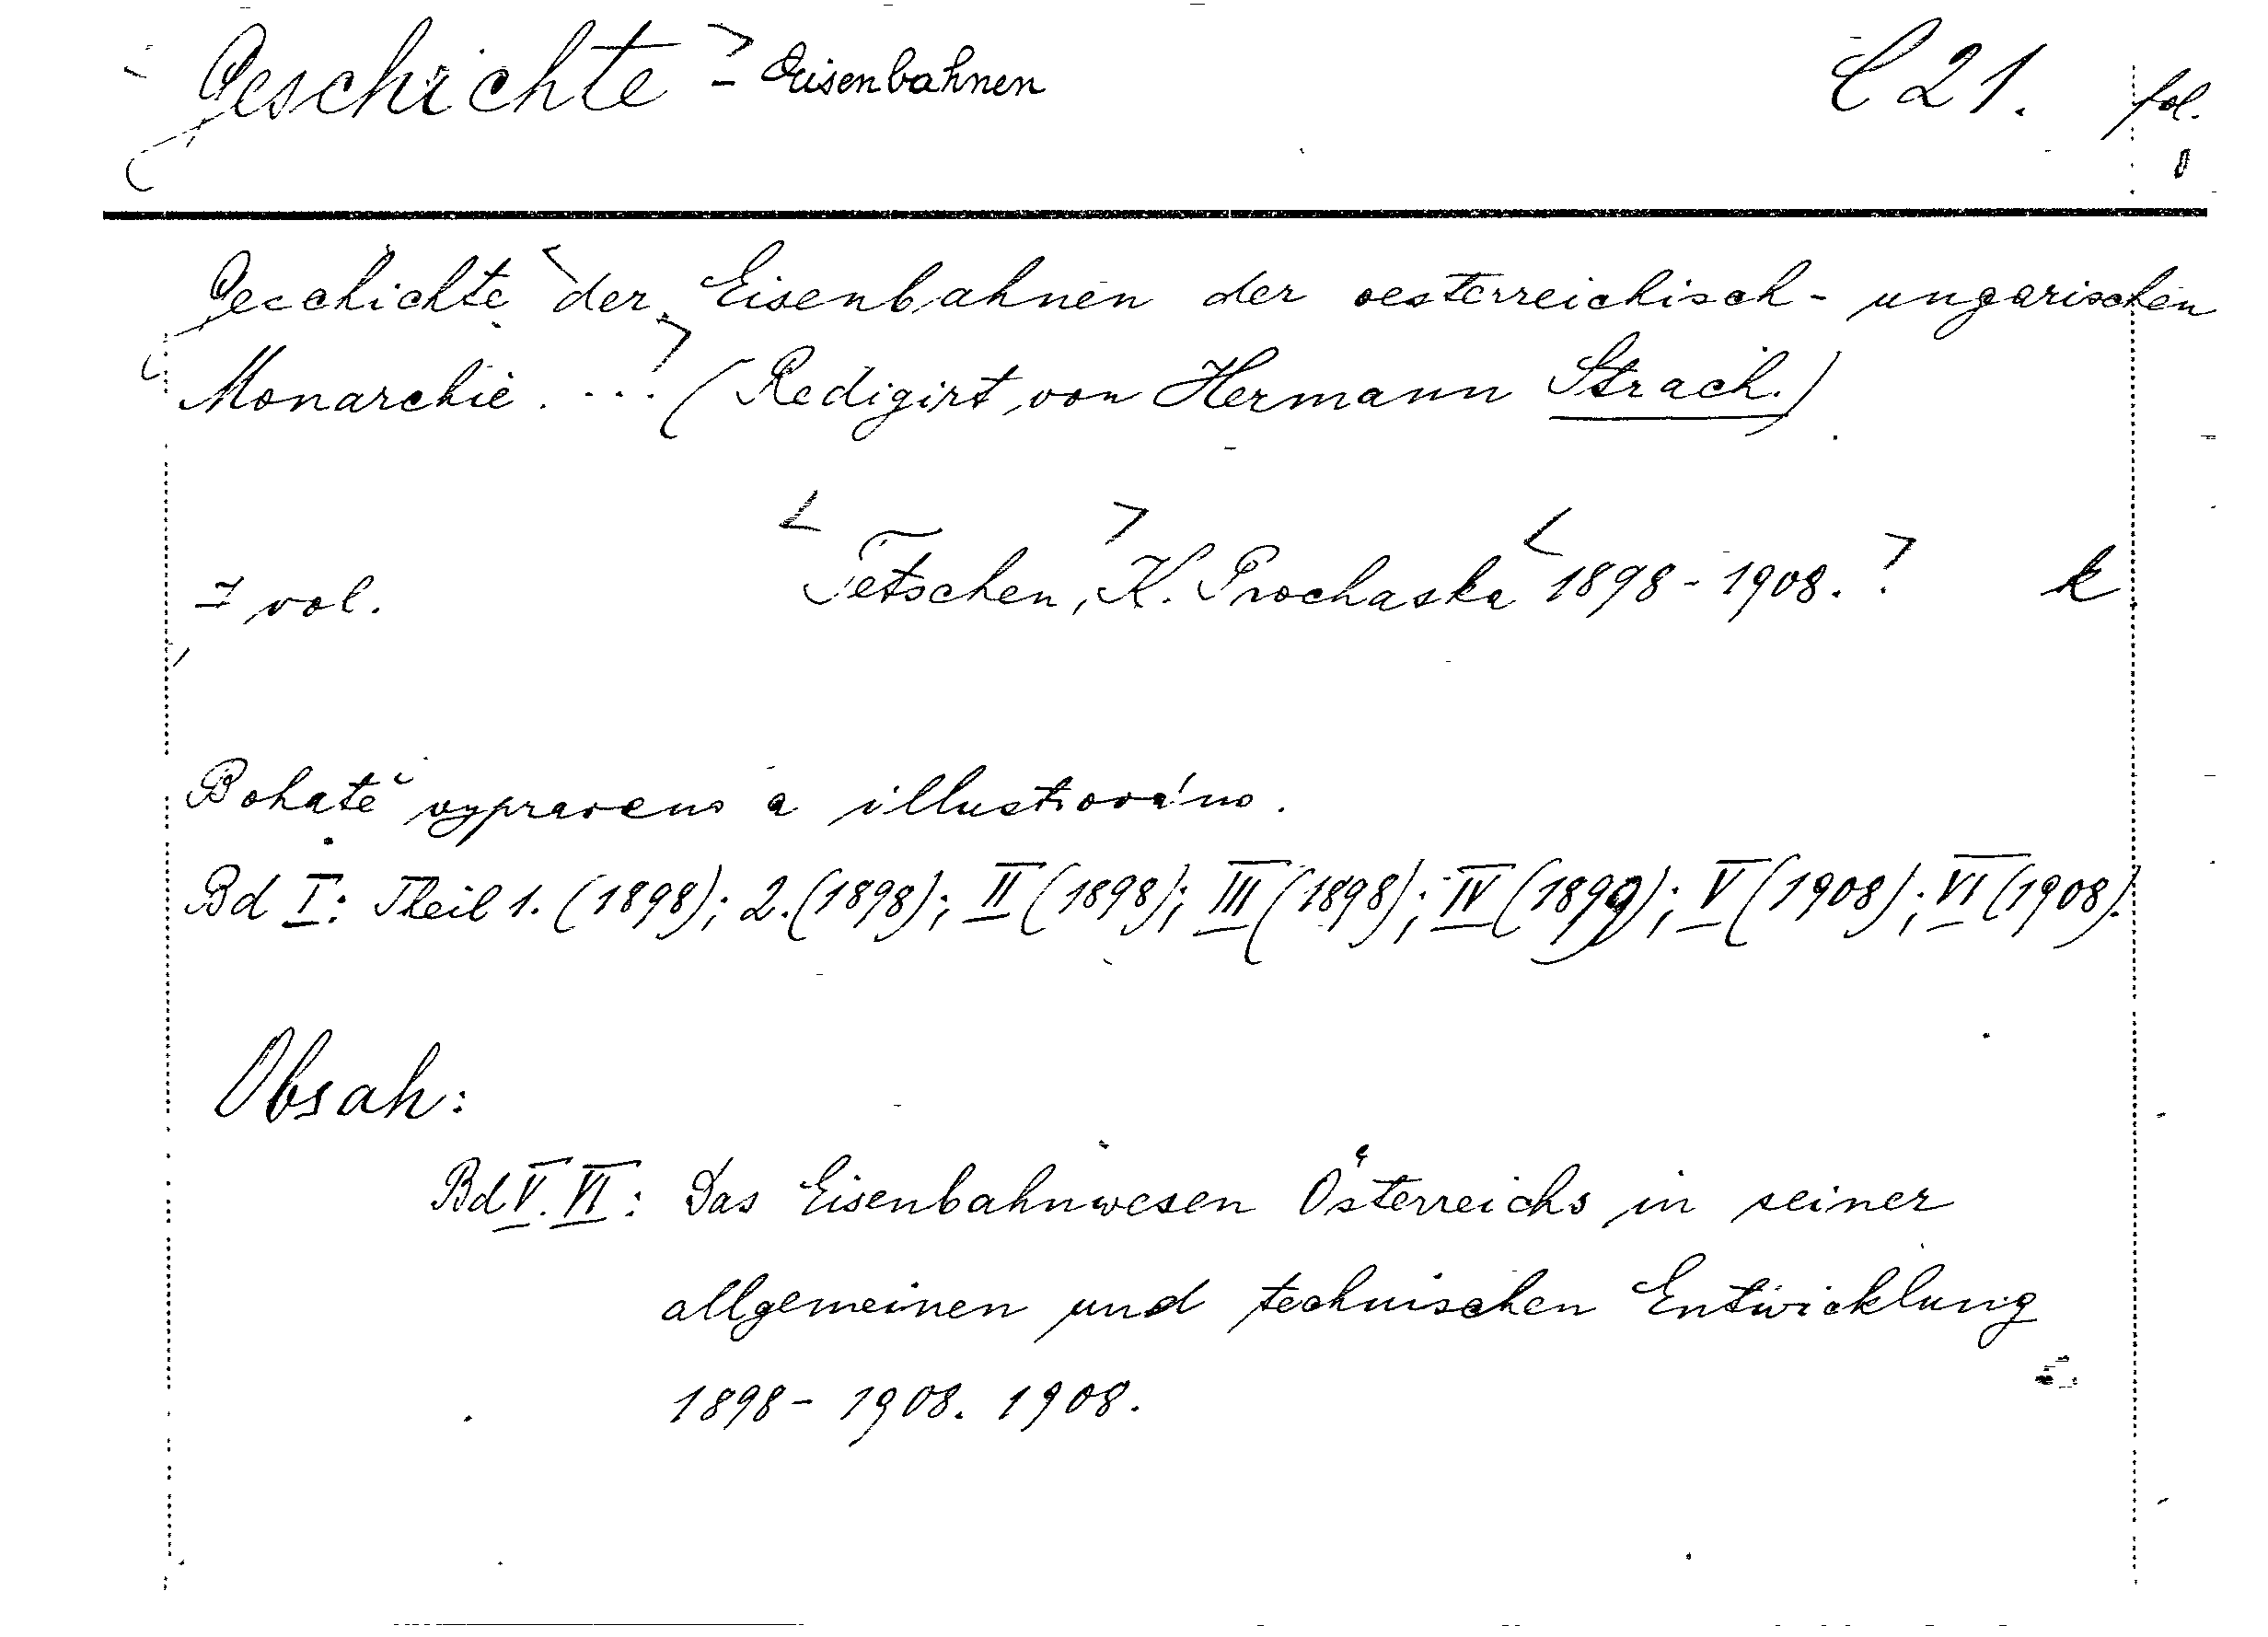 Geschichte - Eisenbahnen C 21. fol.
Geschichte der Eisenbahnen der oesterreichisch-ungarischen
Monarchie. ... (Redigirt von Hermann Strach.)
7 vol. Tetschen, K. Prochaska 1898-1908. k
Bohatě vypraveno a illustrováno.
Bd I: Theil 1. (1898); 2. (1898); II (1898); III (1898); IV (1899); V (1908); VI (1908).
Obsah:
Bd V. VI: Das Eisenbahnwesen Österreichs in seiner
allgemeinen und technischen Entwicklung
1898-1908. 1908.